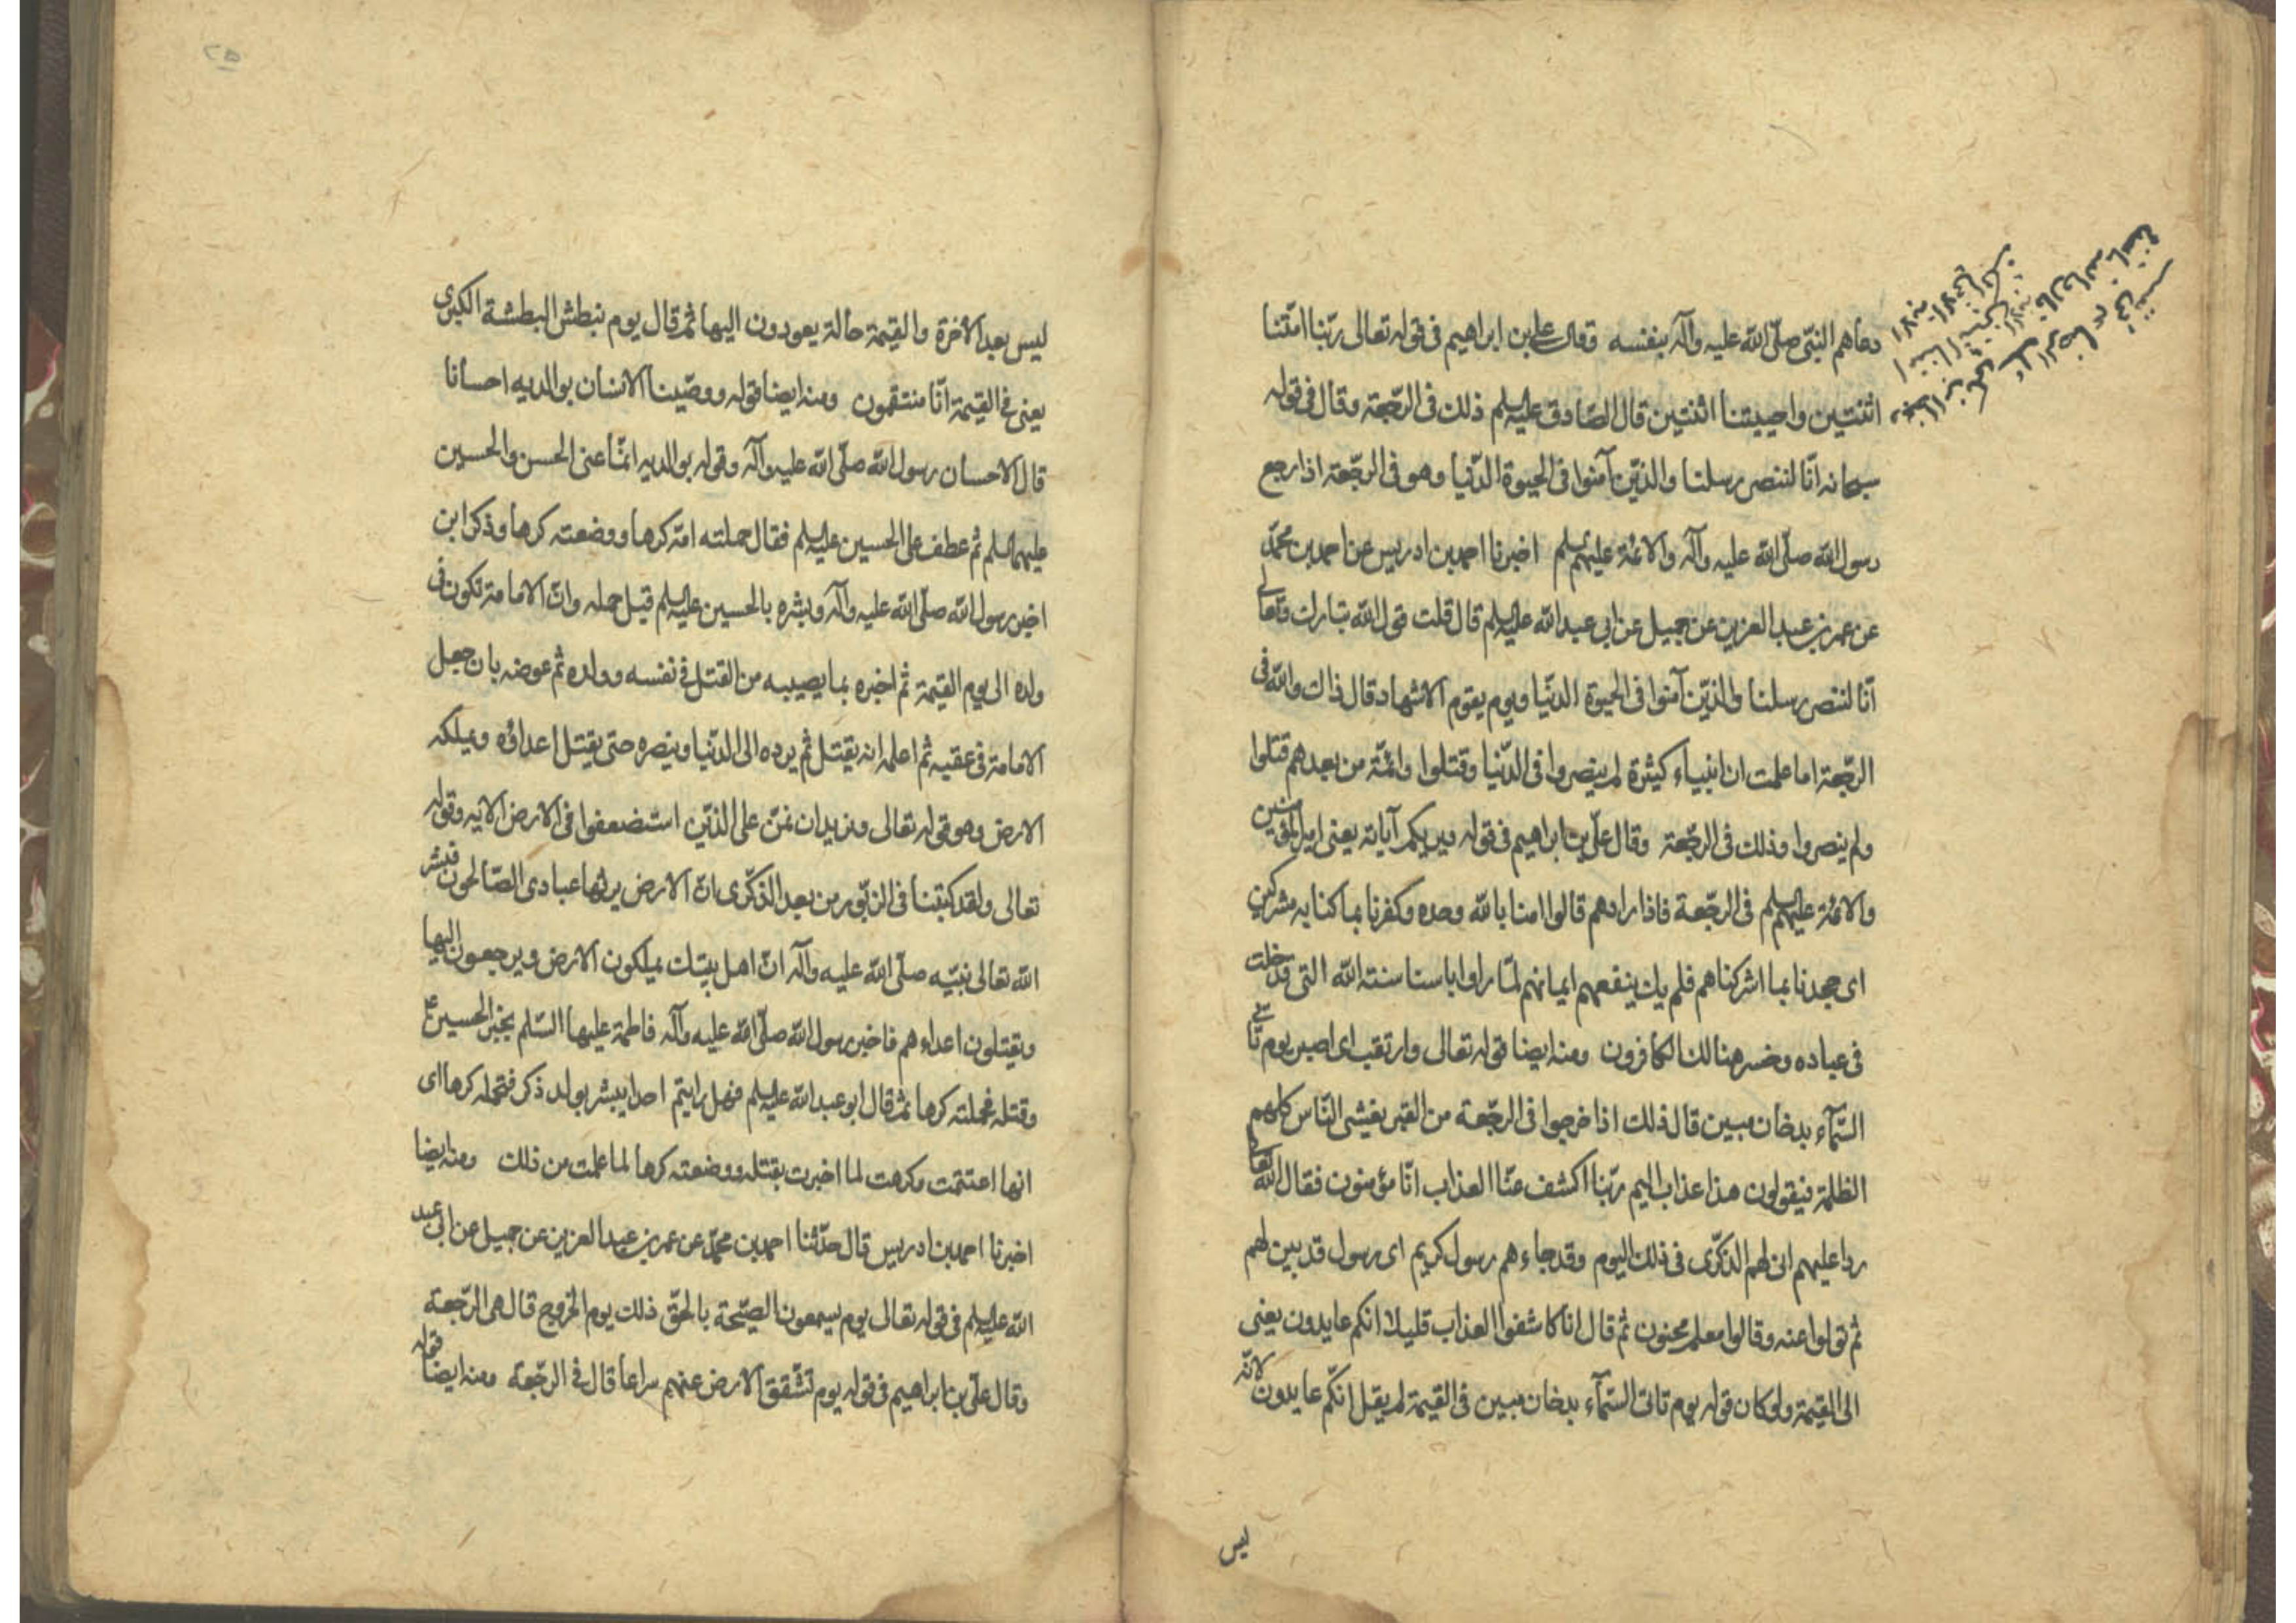 دعاهم النبّى صلّى الله عليه وآله بنفسه وقال على بن ابراهيم فى قوله تعالى ربّنا امتّنا
اثنتين واحييتنا اثنتين قال الصّادق عليه السلم ذلك فى الرجّعة وقال فى قوله
سبحانه انّا لننصر رسلنا والذيّن آمنوا فى الحيوة الدّنيا وهو فى الرجّعة اذا رجع
رسول الله صلّى الله عليه وآله والائمّة عليهم السلم اخبرنا احمد بن ادريس عن احمد بن محمّد
عن عمر بن عبد العزيز عن جميل عن ابى عبد الله عليه السلم قال قلت قول الله تبارك وتعالى
انّا لننصر رسلنا والذيّن آمنوا فى الحيوة الدنّيا ويوم يقوم الاشهاد قال ذاك والله فى
الرجّعة اما علمت ان انبياء كثيرة لم ينصروا فى الدّنيا وقتلوا وائمّة من بعدهم قتلوا
ولم ينصروا وذلك فى الرجّعة وقال علىّ بن ابراهيم فى قوله ويريكم آياته يعنى امير المؤمنين
والائمّة عليهم السلم فى الرجّعة فاذا راوهم قالوا امنا بالله وحده وكفرنا بما كنا به مشركين
اى جحدنا بما اشركناهم فلم يك ينفعهم ايمانهم لمّا راوا باسنا سنة الله التى قد خلت
فى عباده وخسر هنالك الكافرون ومنه ايضا قوله تعالى وارتقب اى اصبر يوم تأتى
السّمآء بدخان مبين قال ذلك اذا خرجوا فى الرجّعة من القبر يغشى النّاس كلهم
الظلمة فيقولون هذا عذاب اليم ربّنا اكشف عنّا العذاب انّا مؤمنون فقال الله تعالى
ردا عليهم انى لهم الذكّرى فى ذلك اليوم وقد جاءهم رسول كريم اى رسول قد بين لهم
ثم تولوا عنه وقالوا معلم مجنون ثم قال انا كاشفوا العذاب قليلا انكم عايدون يعنى
الى القيمة ولو كان قوله يوم تاتى السّمآء بدخان مبين فى القيمة لم يقل انكّم عايدون لانّه
ليس
٢٥
ليس بعد الآخرة والقيمة حالة يعودون اليها ثم قال يوم نبطش البطشة الكبرى
يعنى فى القيمة انّا منتقمون ومنه ايضا قوله ووصّينا الانسان بوالديه احسانا
قال الاحسان رسول الله صلّى الله عليه وآله وقوله بوالديه انمّا عنى الحسن والحسين
عليهما السلم ثم عطف على الحسين عليه السلم فقال حملته امّه كرها ووضعته كرها وذكر ابن
اخبر رسول الله صلّى الله عليه وآله وبشره بالحسين عليه السلم قبل حمله وانّ الامامة تكون فى
ولده الى يوم القيمة ثم اخبره بما يصيبه من القتل فى نفسه وولده ثم عوضه بان جعل
الامامة فى عقبه ثم اعلمه انه يقتل ثم يرده الى الدّنيا وينصره حتى يقتل اعداؤه ويملكه
الارض وهو قوله تعالى ونريد ان نمّن على الذيّن استضعفوا فى الارض الآيه وقوله
تعالى ولقد كتبنا فى الزبّور من بعد الذكّرى انّ الارض يرثها عبادى الصّالحون فبشر
الله تعالى نبيّه صلّى الله عليه وآله انّ اهل بيتك يملكون الارض ويرجعون اليها
ويقتلون اعداءهم فاخبر رسول الله صلّى الله عليه وآله فاطمة عليها السّلم بخبر الحسين ع
وقتله فحملته كرها ثم قال ابو عبد الله عليه السلم فهل رايتم احدا يبشر بولد ذكر فتحمله كرها اى
انها اغتمت وكرهت لما اخبرت بقتله ووضعته كرها لما علمت من ذلك ومنه ايضا
اخبرنا احمد بن ادريس قال حدّثنا احمد بن محمّد عن عمر بن عبد العزيز عن جميل عن ابى عبد
الله عليه السلم فى قوله تعالى يوم يسمعون الصيّحة بالحقّ ذلك يوم الخروج قال هى الرجّعة
وقال علىّ بن ابراهيم فى قوله يوم تشّقق الارض عنهم سراعا قال فى الرجّعة ومنه ايضا قوله